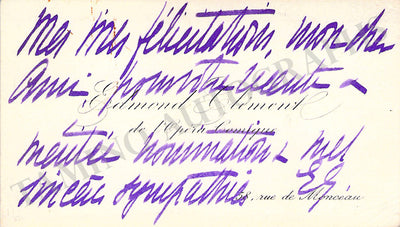 Mes vives félicitations, mon cher
Ami pour ta récente &
Edmond Clément
de l'Opéra-Comique
méritée nomination & mes
sincères sympathies EC
58, rue de Monceau
TAMINO AUTOGRAPHS